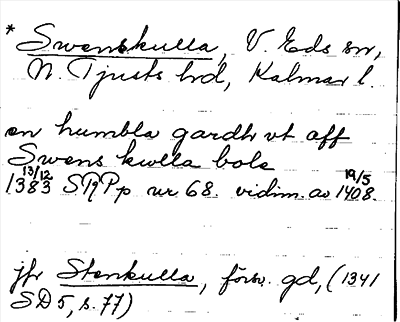 * Swenskulla, V. Eds sn,
N. Tjusts hd, Kalmar l.
en humbla gardh vt aff
Swens kwlla bole
13/12 19/5
1383 SRPp nr 68. vidim. av 1408.
jfr Stenkulla, försv. gd, (1341
SD 5, s. 77)